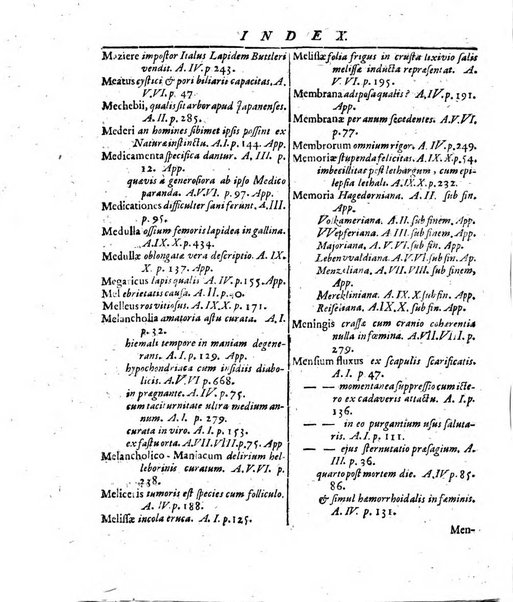 INDEX.
Maziere impostor Italus Lapidem Buttleri
vendit. A. IV. p. 243.
Meatus cystici & pori biliarii capacitas. A.
V.VI. p. 47.
Mechebii, qualis sit arbor apud Japanenses.
A. II. p. 285.
Mederi an homines sibimet ipsis possint ex
Naturæ instinctu. A. I. p. 144. App.
Medicamenta specifica dantur. A. III. p.
12. App.
quævis à generosiora ab ipso Medico
paranda. A. V.VI. p. 27.
Medicationes difficulter sani ferunt. A. III.
p. 95.
Medulla ossium femoris lapidea in gallina.
A. IX. X. p. 434.
Medullæ oblongatæ vera descriptio. A. IX.
X. p. 137. App.
Megaricus lapis qualis A. IV. p. 155. App.
Mel ebrietatis causa. A. II. p. 90.
Melleus ros vitiosus. A. IX. X. p. 171.
Melancholia amatoria astu curata. A. I.
p. 32.
hiemali tempore in maniam dege-
nerans. A. I. p. 129. App.
hypochondriaca cum insidiis diabo-
licis. A. V.VI p. 668.
in prægnante. A. IV. p. 75.
cum taciturnitate ultra medium an-
num. A. I. p. 279.
curata in viro. A. I. p. 153.
ex fastu orta. A.VII.VIII. p. 75. App
Melancholico - Maniacum delirium hel-
leborinis curatum. A. V.VI. p.
238.
Meliceris tumoris est species cum folliculo.
A. IV. p. 188.
Melissæ incola eruca. A. I. p. 125.
Melissæ folia frigus in crusta lixivio salis
melissæ inducta repræsentat. A.
V.VI. p. 195.
Membrana adiposa qualis? A. IV. p. 191.
App.
Membranæ per anum secedentes. A. V.VI.
p. 77.
Membrorum omnium rigor. A. IV. p. 249.
Memoriæ stupenda felicitas. A. IX. X. p. 54.
imbecillitas post lethargum, cum epi-
lepsia lethali. A. IX. X. p. 232.
Memoria Hagedorniana. A. II. sub fin.
App.
Volkameriana. A. II. sub finem. App.
VVepferiana. A. III. sub finem. App.
Majoriana, A. V.VI. sub fin. App.
Lebenvvaldiana. A. V.VI. sub fin. App.
Menzeliana, A. V.VI. sub fin. App.
Merckliniana. A. IX. X sub fin. App.
Reiseliana. A. IX. X. sub fin. App.
Meningis crassæ cum cranio cohærentia
nulla in infirmo. A. VII. VI. I. p.
279.
Mensium fluxus ex scapulis scarificatis.
A. I. p. 47.
— — momentanea suppressio cum icte-
ro ex cadaveris attactu. A. I. p.
136.
— — in eo purgantium usus saluta-
ris. A. I. p. 111.
— — ejus sternutatio præsagium. A.
III. p. 36.
quarto post mortem die. A. IV. p. 85.
86.
& simul hæmorrhoidalis in fæminis.
A. IV. p. 131.
Men-